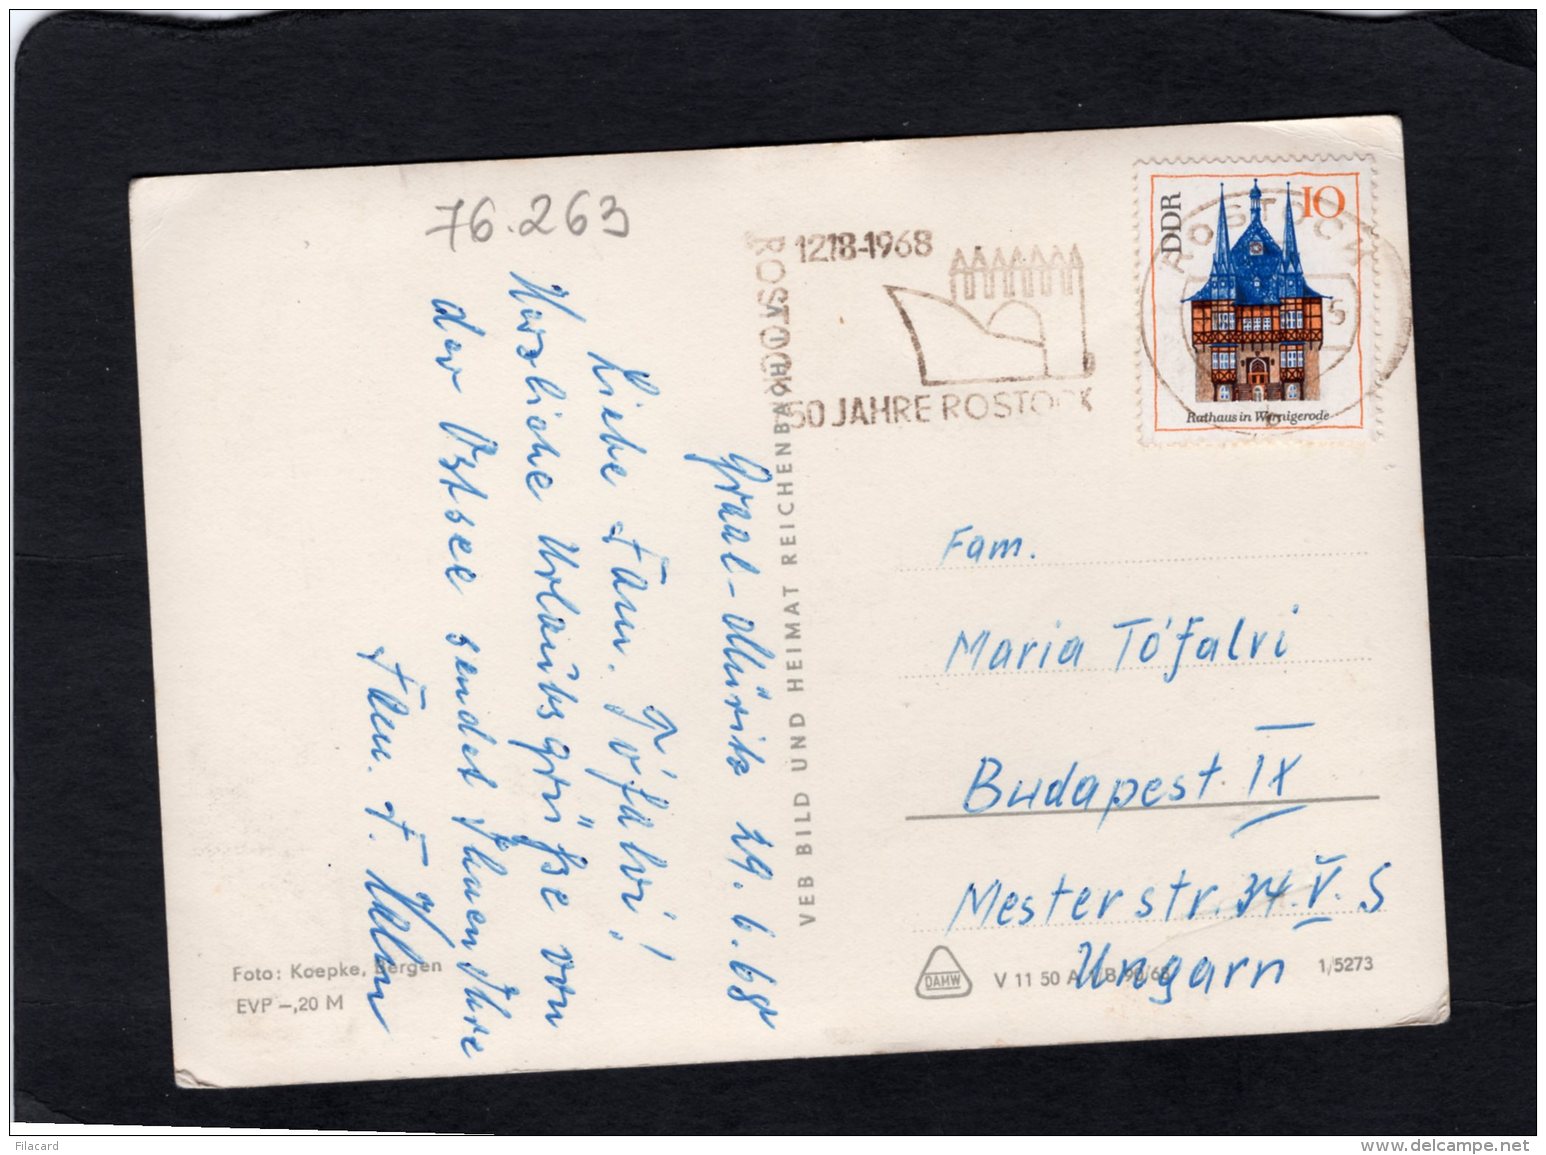 76.263
Graal-Müritz 29.6.68
Liebe Fam. Tófalvi!
Herzliche Urlaubsgrüße von
der Ostsee sendet Ihnen Ihre
Fam. F.
Foto: Koepke, Bergen
EVP –,20 M
VEB BILD UND HEIMAT REICHENBACH
ROSTOCK
1218-1968
50 JAHRE ROSTOCK
DDR
10
Rathaus in Wernigerode
ROSTOCK
Fam.
Maria Tófalvi
Budapest. IX
Mesterstr. 34. V. 5
Ungarn
DAMW
V 11 50 A 1/B
1/5273
Filacard
www.delcampe.net